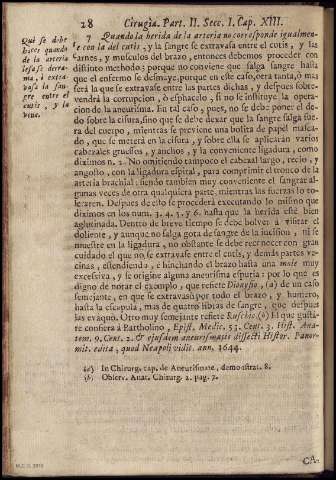 28 Cirugia. Part. II. Secc. I. Cap. XIII.
Qué se debe
hacer quando
de la arteria
lesa se derra-
ma, i extra-
vasa la san-
gre entre el
cutis, y la
7 Quando la herida de la arteria no corresponde igualmen-
te con la del cutis, y la sangre se extravasa entre el cutis, y las
carnes, y musculos del brazo, entonces debemos proceder con
distinto methodo; porque no conviene que salga sangre hasta
que el enfermo se desmaye, porque en este caso, óera tanta, ò mas
serà la que se extravase entre las partes dichas, y despues sobre-
vendrà la corrupcion, ò esphacelo, si no se instituye la ope-
racion de la aneurisma. En tal caso, pues, no se debe poner el de-
do sobre la cisura, sino que se debe dexar que la sangre salga fue-
ra del cuerpo, mientras se previene una bolita de papel masca-
do, que se meterà en la cisura, y sobre ella se aplicaràn varios
cabezales gruesos, y anchos, y la conveniente ligadura, como
diximos n. 2. No omitiendo tampoco el cabezal largo, recio, y
angosto, con la ligadura espiral, para comprimir el tronco de la
arteria brachial; siendo tambien muy conveniente el sangrar al-
gunas veces de otra qualquiera parte, mientras las fuerzas lo to-
leraren. Despues de esto se procederà executando lo mismo que
diximos en los num. 3. 4. 5. y 6. hasta que la herida estè bien
aglutinada. Dentro de breve tiempo se debe bolver à visitar el
doliente, y aunque no salga gota de sangre de la incision, ni se
muestre en la ligadura, no obstante se debe reconocer con gran
cuidado el que no se extravase entre el cutis, y demàs partes ve-
cinas, estendiendo, e hinchando el brazo hasta una mole muy
excessiva, y se origine alguna aneurisma espuria: por lo que es
digno de notar el exemplo, que refiere Dionysio, (a) de un caso
semejante, en que se extravasaron por todo el brazo, y humero,
hasta la escapula, mas de quatro libras de sangre, que despues
las evaquò. Otro muy semejante refiere Ruschio. (b) El que gustà-
re consiera à Bartholino, Epist. Medic. 53. Cent. 3. Hist. Ana-
tom. 9. Cent. 2. & ejusdem aneurismatis dissecti Histor. Panor-
mit. edita, quod Neapoli vidit. ann. 1644.
(a) In Chirurg. cap. de Aneurismate, demonstrat. 8.
(b) Observ. Anat. Chirurg. 2. pag. 7.
CA-